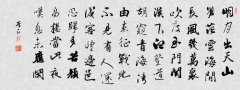 明月出天山
蒼茫雲海間
長風幾萬里
吹度玉門關
漢下白登道
胡窺青海灣
由來征戰地
不見有人還
戍客望邊色
思歸多苦顏
高樓當此夜
嘆息未應閑